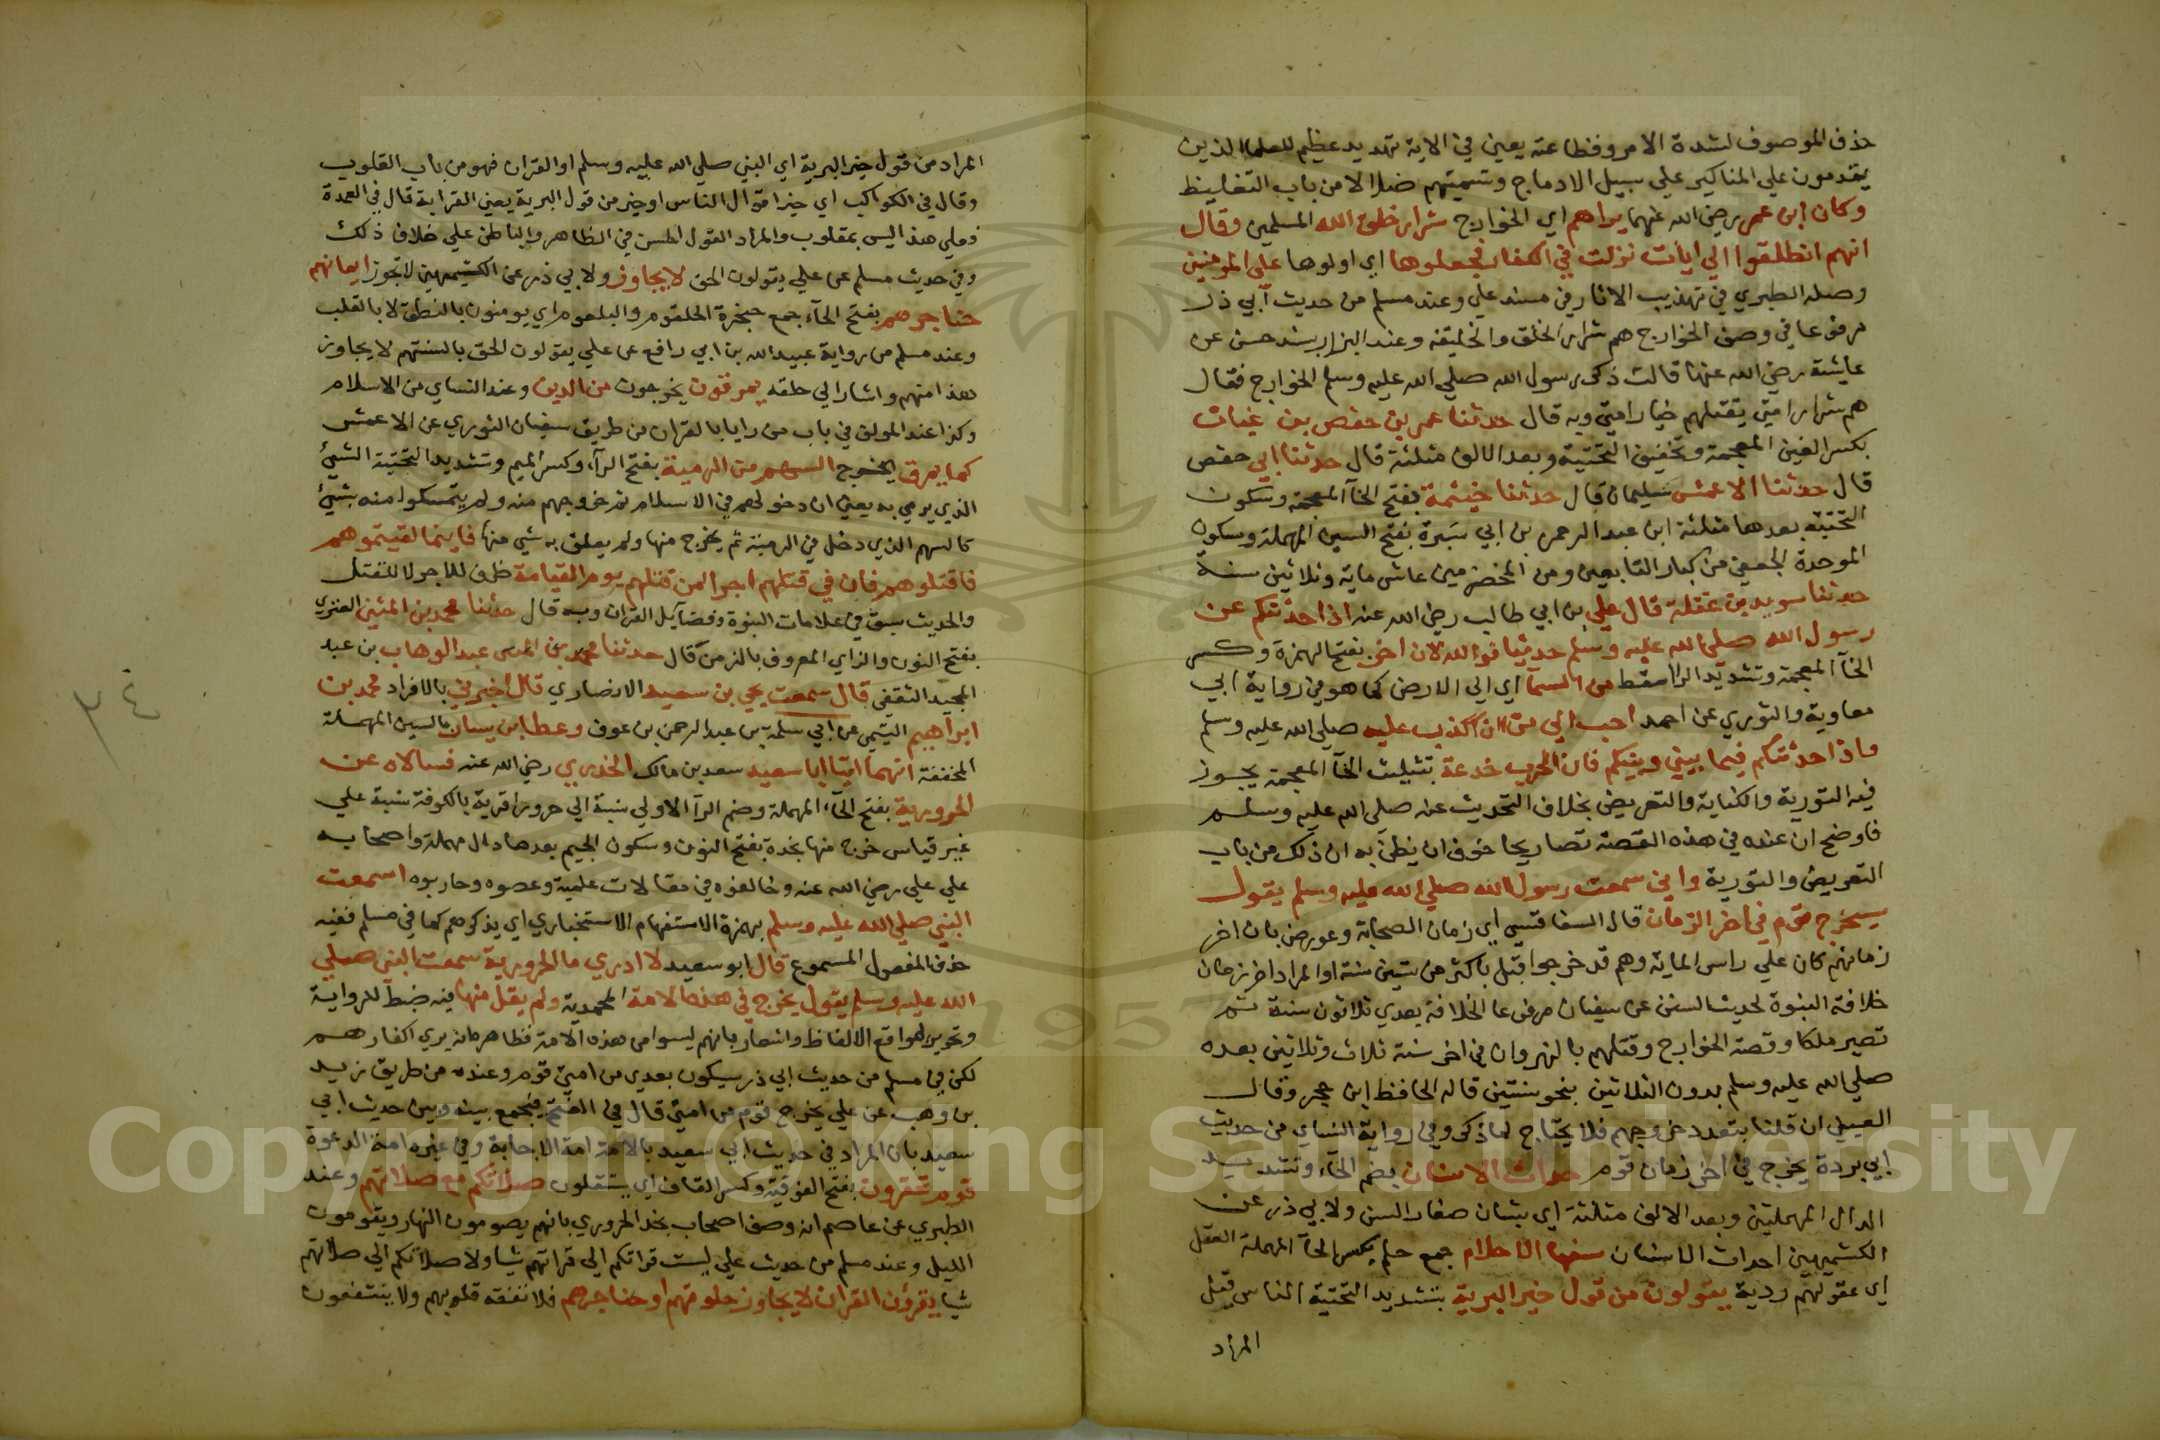 حذف الموصوف لشدة الامر وفظاعته يعني في الاية تهديد عظيم للعلما الذين
يقدمون علي المناكير علي سبيل الادماج وتسميتهم ضلالا من باب التغليظ
وكان ابن عمر رضي الله عنهما يراهم اي الخوارج شرار خلق الله المسلمين وقال
انهم انطلقوا الي ايات نزلت في الكفار فجعلوها اي اولوها علي المومنين
وصله الطبري في تهذيب الاثار في مسند علي وعند مسلم من حديث ابي ذر
مرفوعا في وصف الخوارج هم شرار الخلق والخليقه وعند البزار بسند حسن عن
عايشة رضي الله عنها قالت ذكر رسول الله صلي الله عليه وسلم الخوارج فقال
هم شرار امتي يقتلهم خيار امتي وبه قال حدثنا عمر بن حفص بن غياث
بكسر الغين المعجمة وتخفيف التحتية وبعد الالف مثلثة قال حدثنا ابي حفص
قال حدثنا الاعمش سليمان قال حدثنا خيثمة بفتح الخآ المعجمة وسكون
التحتية بعدها مثلثة ابن عبد الرحمن بن ابي سَبرة بفتح السين المهملة وسكون
الموحدة الجعفي من كبار التابعين ومن المخضرمين عاش ماية وثلاثين سنة
حدثنا سويد بن غفلة قال علي بن ابي طالب رضي الله عنه اذا حدثتكم عن
رسول الله صلي الله عليه وسلم حديثا فوالله لان اخر بفتح الهمزة وكسر
الخآ المعجمة وتشديد الرا اسقط من السمآ اي الي الارض كما هو في رواية ابي
معاوية والثوري عن احمد احب الي من ان اكذب عليه صلي الله عليه وسلم
واذا حدثتكم فيما بيني وبينكم فان الحرب خدعة بتثليث الخآ المعجمة يجوز
فيه التورية والكناية والتعريض بخلاف التحديث عنه صلي الله عليه وسلم
فاوضح ان عنده في هذه القصة تصاريحا خوف ان يظن به ان ذلك من باب
التعريض والتورية واني سمعت رسول الله صلي الله عليه وسلم يقول
سيخرج قوم في اخر الزمان قال السفاقسي اي زمان الصحابة وعورض بان اخر
زمانهم كان علي راس الماية وهم قد خرجوا قبل باكثر من ستين سنة او المراد اخر زمان
خلافة النبوة لحديث السنن عن سفينان مرفوعا الخلافة بعدي ثلاثون سنة ثم
تصير ملكا وقصة الخوارج وقتلهم بالنهروان في اخر سنة ثلاث وثلاثين بعده
صلي الله عليه وسلم بدون الثلاثين بنحو سنتين قاله الحافظ ابن حجر وقال
العيني ان قلنا بتعدد خروجهم فلا يحتاج لما ذكر وفي رواية النساي من حديث
ابي بردة يخرج في اخر زمان قوم حداث الاسنان بضم الحآء وتشديد
الدال المهملتين وبعد الالف مثلثة اي بشان صغار السن ولابي ذر عن
الكشميهيني احداث الاسنان سفها الاحلام جمع حلم بكسر الحآ المهملة العقل
اي عقولهم ردية يقولون من قول خير البرية بتشديد التحتية الناس قيل
المراد
المراد من قول خير البرية اي النبي صلي الله عليه وسلم او القران فهو من باب القلوب
وقال في الكواكب اي خير اقوال الناس او خير من قول البرية يعني القراية قال في العمدة
فعلي هذا ليس بمقلوب والمراد القول الحسن في الظاهر والباطن علي خلاف ذلك
وفي حديث مسلم عن علي يقولون الحق لا يجاوز ولابي ذر عن الكشميهيني لا تجوز ايمانهم
حناجرهم بفتح الحآء جمع حنجرة الحلقوم والبلعوم اي يومنون بالنطق لا بالقلب
وعند مسلم من رواية عبيد الله بن ابي رافع عن علي يقولون الحق بالسنتهم لا يجاوز
هذا منهم واشار الي حلقه يمرقون يخرجون من الدين وعند النساي من الاسلام
وكذا عند المولف في باب من رايا بالقران من طريق سفيان الثوري عن الاعمش
كما يمرق يخرج السهم من الرمية بفتح الرآء وكسر الميم وتشديد التحتية الشيئ
الذي يرمي به يعني ان دخولهم في الاسلام ثم خروجهم منه ولم يتمسكوا منه بشيئ
كالسهم الذي دخل في الرمية ثم يخرج منها ولم يعلق به شي منها فاينما لقيتموهم
فاقتلوهم فان في قتلهم اجرا لمن قتلهم يوم القيامة ظرف للاجر لا للقتل
والحديث سبق في علامات النبوة وفضآيل القران وبه قال حدثنا محمد بن المثني العنزي
بفتح النون والزاي المعروف بالزمن قال حدثنا عبد الوهاب بن عبد
المجيد الثقفي قال سمعت يحيي بن سعيد الانصاري قال اخبرني بالافراد محمد بن
ابراهيم التيمي عن ابي سلمة بن عبد الرحمن بن عوف وعطا ابن يسار بالسين المهملة
المخففة انهما اتيا ابا سعيد سعد بن مالك الخدري رضي الله عنه فسالاه عن
الحرورية بفتح الحآء المهملة وضم الرآ الاولي نسبة الي حرورا قرية بالكوفة نسبة علي
غير قياس خرج منها نجدة بفتح النون وسكون الجيم بعدها دال مهملة واصحابه
علي علي رضي الله عنه وخالفوه في مقالات علمية وعصوه وحاربوه اسمعت
النبي صلي الله عليه وسلم بهمزة الاستفهام الاستخباري اي يذكرهم كما في مسلم ففيه
حذف المفعول المسموع قال ابو سعيد لا ادري ما الحرورية سمعت النبي صلي
الله عليه وسلم يقول يخرج في هذه الامة المحمدية ولم يقل منها فيه ضبط للرواية
وتحرير لمواقع الالفاظ واشعار بانهم ليسوا من هذه الامة فظاهره انه يري اكفارهم
لكن في مسلم من حديث ابي ذر سيكون بعدي من امتي قوم وعنده من طريق زيد
بن وهب عن علي يخرج قوم من امتي قال في الفتح فيجمع بينه وبين حديث ابي
سعيد بان المراد في حديث ابي سعيد بالامة امة الاجابة وفي غيره امة الدعوة
قوم تحقرون بفتح الفوقية وكسر القاف اي يستقلون صلاتكم مع صلاتهم وعند
الطبري عن عاصم انه وصف اصحاب نجد الحروري بانهم يصومون النهار ويقومون
الليل وعند مسلم من حديث علي ليست قراتكم الي قراتهم شيا ولا صلاتكم الي صلاتهم
شيا يقرؤن القران لا يجاوز حلوقهم او حناجرهم فلا تفقه قلوبهم ولا ينتفعون
٣٤
Copyright © King Saud University
1957